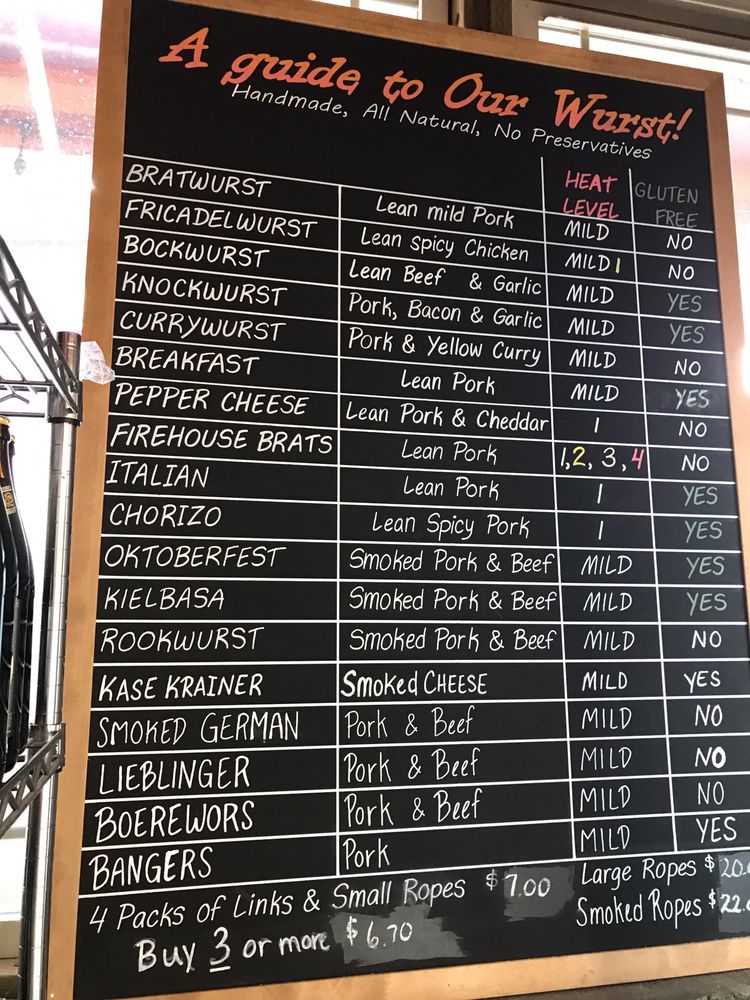 A guide to Our Wurst!
Handmade, All Natural, No Preservatives
HEAT LEVEL GLUTEN FREE
BRATWURST Lean mild Pork MILD NO
FRICADELWURST Lean spicy Chicken MILD 1 NO
BOCKWURST Lean Beef & Garlic MILD YES
KNOCKWURST Pork, Bacon & Garlic MILD YES
CURRYWURST Pork & Yellow Curry MILD NO
BREAKFAST Lean Pork MILD YES
PEPPER CHEESE Lean Pork & Cheddar 1 NO
FIREHOUSE BRATS Lean Pork 1, 2, 3, 4 NO
ITALIAN Lean Pork 1 YES
CHORIZO Lean Spicy Pork 1 YES
OKTOBERFEST Smoked Pork & Beef MILD YES
KIELBASA Smoked Pork & Beef MILD YES
ROOKWURST Smoked Pork & Beef MILD NO
KASE KRAINER Smoked CHEESE MILD YES
SMOKED GERMAN Pork & Beef MILD NO
LIEBLINGER Pork & Beef MILD NO
BOEREWORS Pork & Beef MILD NO
BANGERS Pork MILD YES
4 Packs of Links & Small Ropes $7.00 Large Ropes $20.
Buy 3 or more $6.70 Smoked Ropes $22.